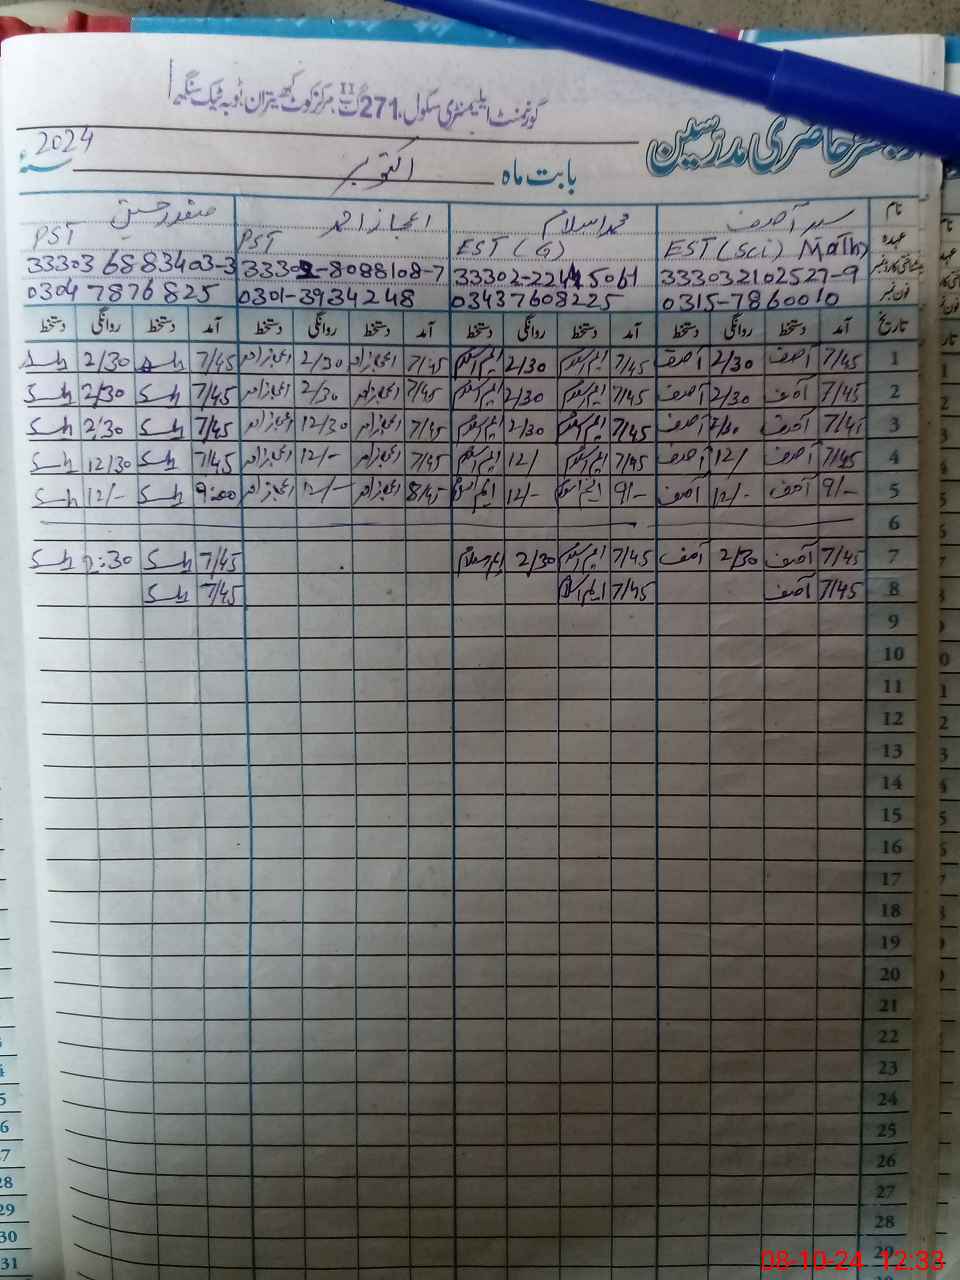 گورنمنٹ ایلیمنٹری سکول، 271 گ ب II مرکز کوٹ کھیتران ٹوبہ ٹیک سنگھ
رجسٹر حاضری مدرسین
بابت ماہ اکتوبر سنہ 2024
نام آصف محمد اسلام اعجاز احمد صفدر حسین
عہدہ EST (Sci) Math) EST (G) PST PST
شناختی کارڈ نمبر 333032102527-9 33303 6883403-3
فون نمبر 0315-7860010 03437608225 0301-3934248 0304 7876825
تاریخ آمد دستخط روانگی دستخط آمد دستخط روانگی دستخط آمد دستخط روانگی دستخط آمد دستخط روانگی دستخط
1 7/45 آصف 2/30 آصف 7/45 ایم اسلام 2/30 ایم اسلام 7/45 اعجاز احمد 2/30 اعجاز احمد 7/45 2/30
2 7/45 آصف 2/30 آصف 7/45 ایم اسلام 2/30 ایم اسلام 7/45 اعجاز احمد 2/30 اعجاز احمد 7/45 2/30
3 7/45 آصف آصف 7/45 ایم اسلام 2/30 ایم اسلام 7/45 اعجاز احمد 12/30 اعجاز احمد 7/45 2/30
4 7/45 آصف 12/ آصف 7/45 ایم اسلام 12/ ایم اسلام 7/45 اعجاز احمد 12/- اعجاز احمد 7/45 12/30
5 9/- آصف 12/- آصف 9/- ایم اسلام 12/- ایم اسلام 8/45 اعجاز احمد 12/- اعجاز احمد 9:00 12/-
6
7 7/45 آصف 2/30 آصف 7/45 ایم اسلام 2/30 ایم اسلام 7/45 2:30
8 7/45 آصف 7/45 ایم اسلام 7/45
9
10
11
12
13
14
15
16
17
18
19
20
21
22
23
24
25
26
27
28
29
08-10-24 12:33